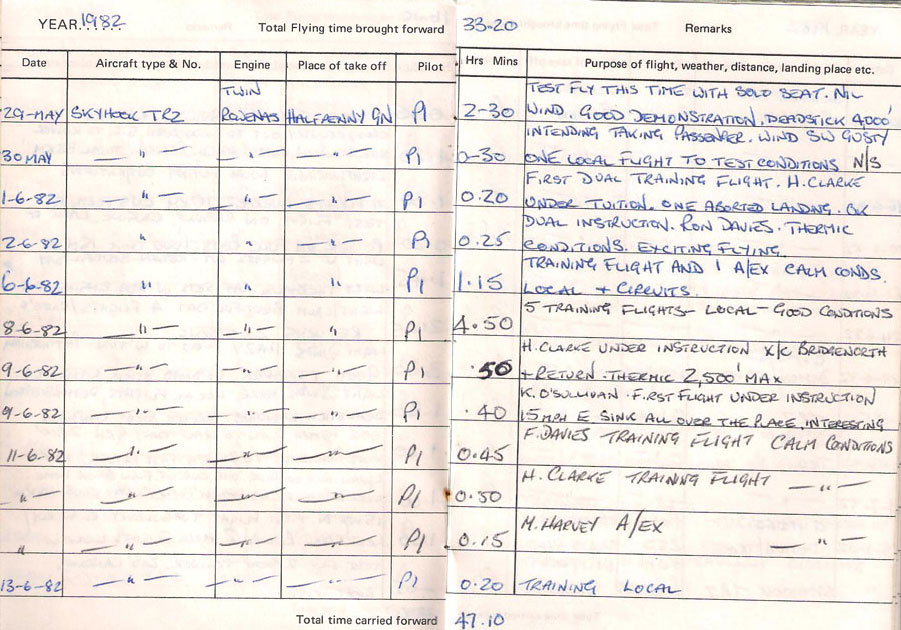 YEAR 1982 Total Flying time brought forward 33-20 Remarks
Date Aircraft type & No. Engine Place of take off Pilot Hrs Mins Purpose of flight, weather, distance, landing place etc.
29-MAY SKYHOOK TR2 TWIN HALFPENNY GN P1 2-30 TEST FLY THIS TIME WITH SOLO SEAT. NIL
WIND. GOOD DEMONSTRATION. DEADSTICK 4000'
30 MAY " " " P1 0-30 INTENDING TAKING PASSENGER. WIND SW GUSTY
ONE LOCAL FLIGHT TO TEST CONDITIONS N/S
1-6-82 " " " P1 0.20 FIRST DUAL TRAINING FLIGHT. H. CLARKE
UNDER TUITION. ONE ABORTED LANDNG. OK
2-6-82 " " " P1 0.25 DUAL INSTRUCTION. RON DAVIES. THERMIC
CONDITIONS. EXCITING FLYING
6-6-82 " " " P1 1.15 TRAINING FLIGHT AND 1 A/EX CALM CONDS
LOCAL + CIRCUITS.
8-6-82 " " " P1 4.50 5 TRAINING FLIGHTS - LOCAL - GOOD CONDITIONS
9-6-82 " " " P1 .50 H. CLARKE UNDER INSTRUCTION X/C BRIDGENORTH
+ RETURN. THERMIC 2,500' MAX
9-6-82 " " " P1 .40 K. O'SULLIVAN. FIRST FLIGHT UNDER INSTRUCTION
15 MPH E SINK ALL OVER THE PLACE, INTERESTING
11-6-82 " " " P1 0.45 F. DAVIES TRAINING FLIGHT CALM CONDITIONS
" " " " P1 0.50 H. CLARKE TRAINING FLIGHT "
" " " " P1 0.15 M. HARVEY A/EX "
13-6-82 " " " P1 0.20 TRAINING LOCAL
Total time carried forward 47.10